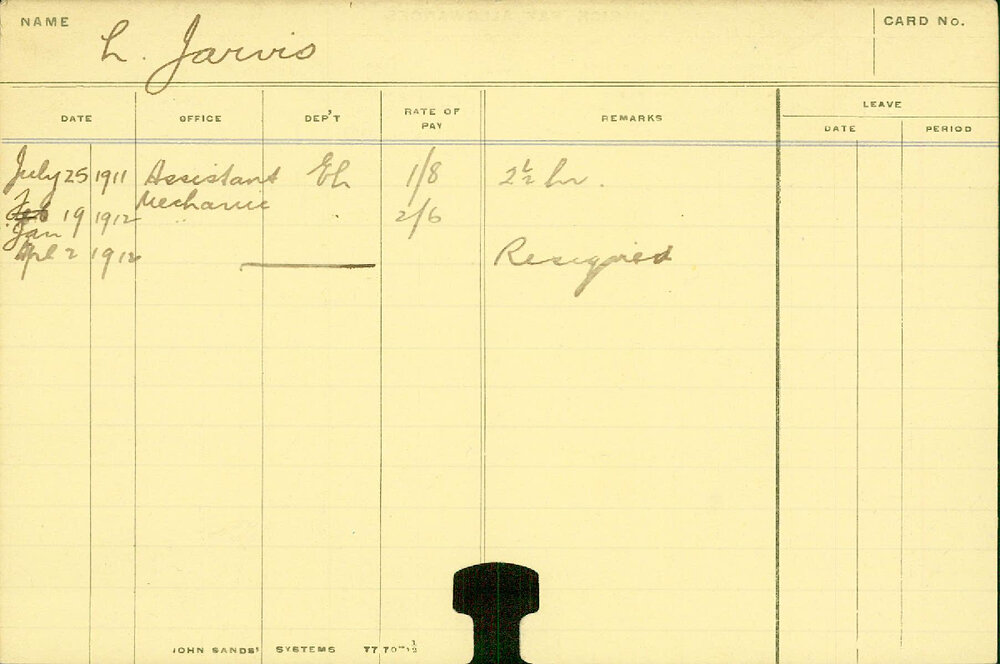 NAME L. Jarvis CARD No.
DATE OFFICE DEP'T RATE OF PAY REMARKS LEAVE
DATE PERIOD
July 25 1911 Assistant Eh 1/8 2½ hr.
Mechanic
Feb 19 1912 " 2/6
Jan
Apl 2 1912 Resigned
JOHN SANDS' SYSTEMS